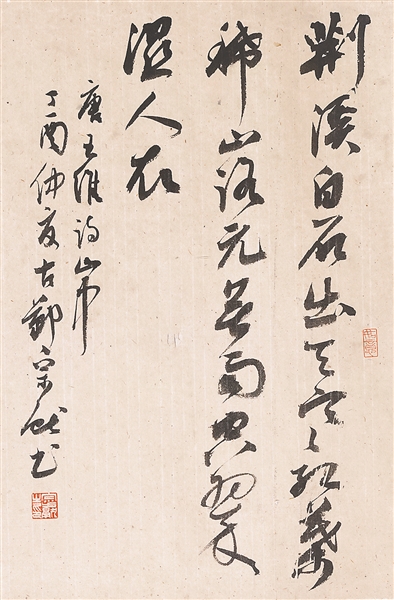 荆溪白石出天寒红葉
稀山路元無雨空翠
湿人衣
唐王维诗山中
丁酉仲夏古鄞宗书